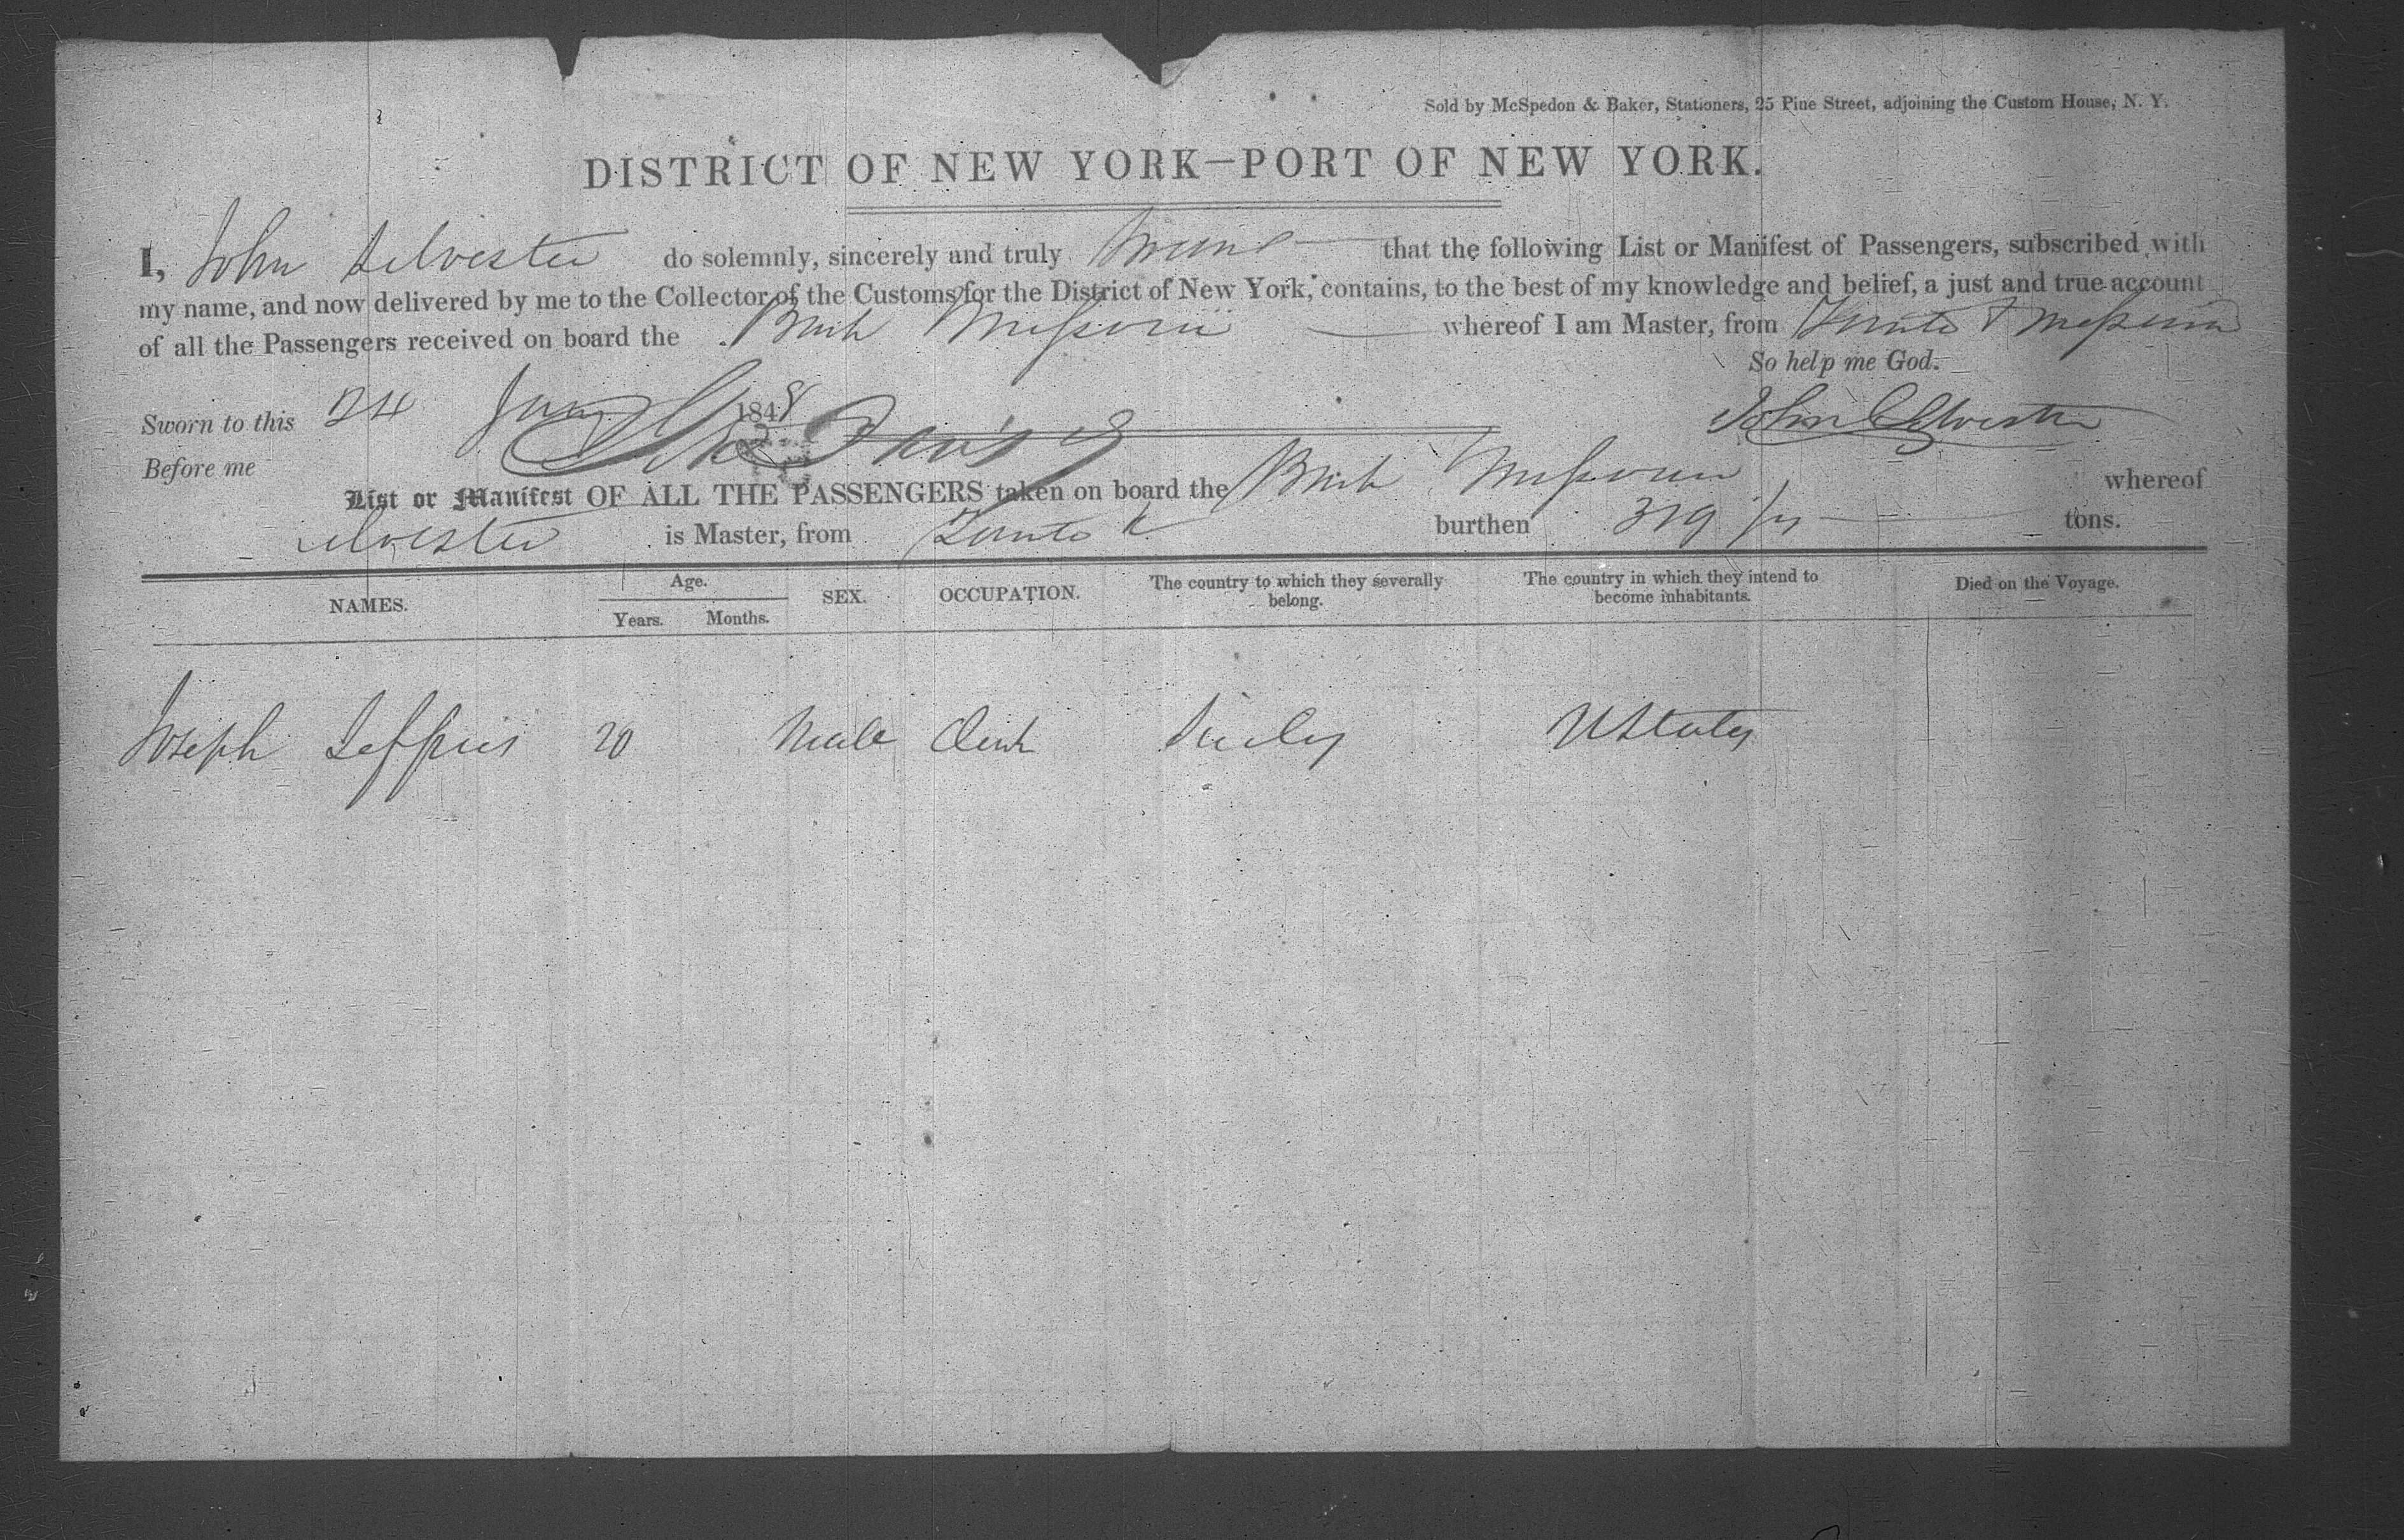 Sold by McSpedon & Baker, Stationers, 25 Pine Street, adjoining the Custom House, N. Y.
DISTRICT OF NEW YORK—PORT OF NEW YORK.
I, John Silvester do solemnly, sincerely and truly swear that the following List or Manifest of Passengers, subscribed with
my name, and now delivered by me to the Collector of the Customs for the District of New York, contains, to the best of my knowledge and belief, a just and true account
of all the Passengers received on board the Missouri whereof I am Master, from Zante & Messina
So help me God.
Sworn to this 24 1848 John Silvester
Before me
List or Manifest OF ALL THE PASSENGERS taken on board the Missouri whereof
Silvester is Master, from Zante & burthen 319 tons.
NAMES. Age. Years. Months. SEX. OCCUPATION. The country to which they severally belong. The country in which they intend to become inhabitants. Died on the Voyage.
Joseph Jeffries 20 Male Clerk Sicily U States